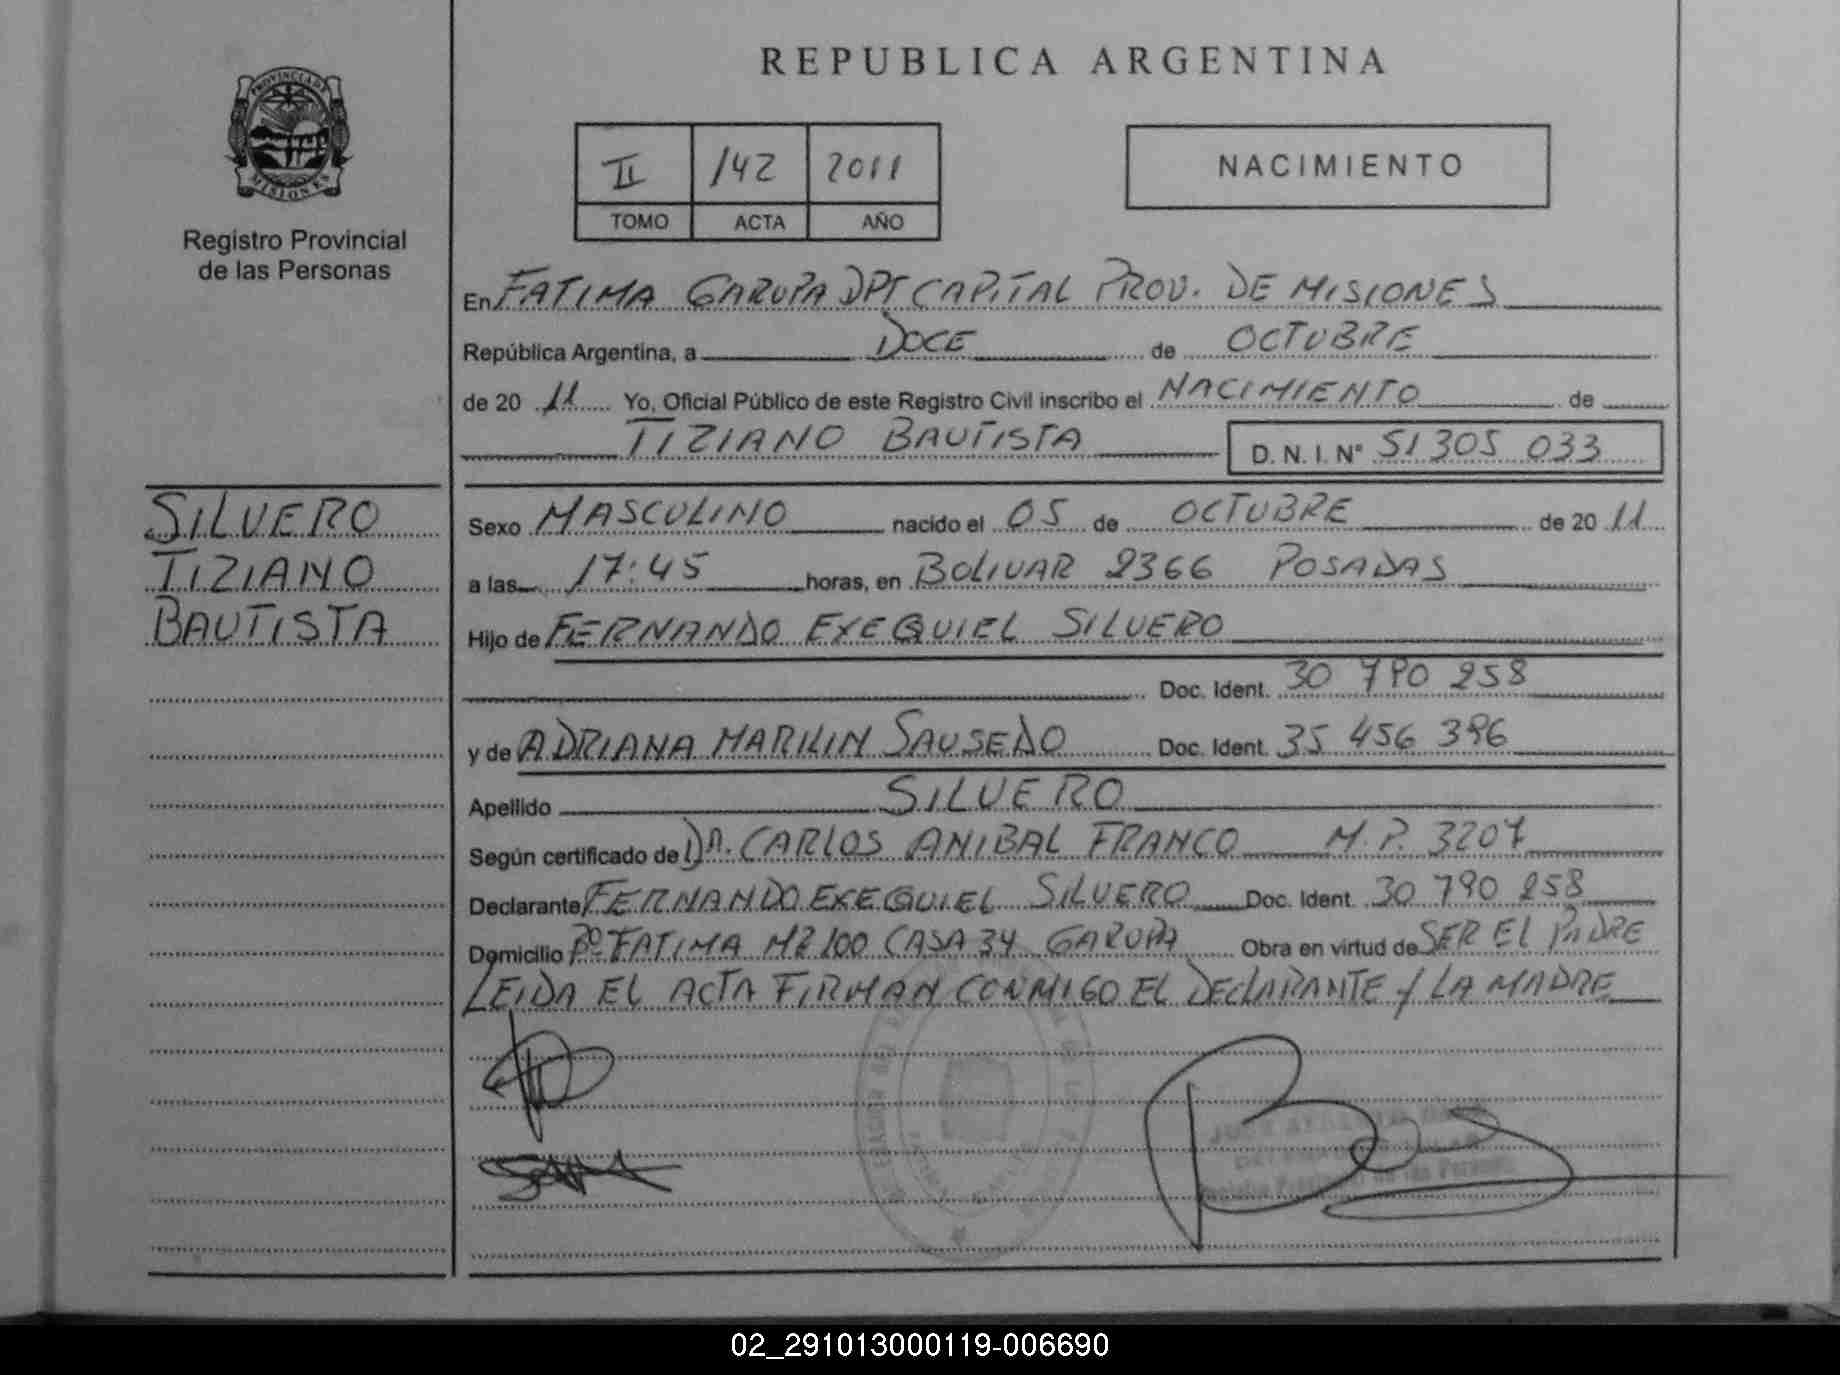 REPUBLICA ARGENTINA
PROVINCIA DE
MISIONES
Registro Provincial
de las Personas
II 142 2011
TOMO ACTA AÑO
NACIMIENTO
En FATIMA GARUPA DPT CAPITAL PROV. DE MISIONES
República Argentina, a DOCE de OCTUBRE
de 20 11 Yo, Oficial Público de este Registro Civil inscribo el NACIMIENTO de
TIZIANO BAUTISTA D.N.I. Nº 51 305 033
SILVERO
TIZIANO
BAUTISTA
Sexo MASCULINO nacido el 05 de OCTUBRE de 20 11
a las 17:45 horas, en BOLIVAR 2366 POSADAS
Hijo de FERNANDO EXEQUIEL SILVERO
Doc. Ident. 30 790 258
y de ADRIANA MARILIN SAUSEDO Doc. Ident. 35 456 396
Apellido SILVERO
Según certificado de DR. CARLOS ANIBAL FRANCO M.P. 3207
Declarante FERNANDO EXEQUIEL SILVERO Doc. Ident. 30 790 258
Domicilio Bº FATIMA MZ 100 CASA 34 GARUPA Obra en virtud de SER EL PADRE
LEIDA EL ACTA FIRMAN CONMIGO EL DECLARANTE Y LA MADRE
02_291013000119-006690